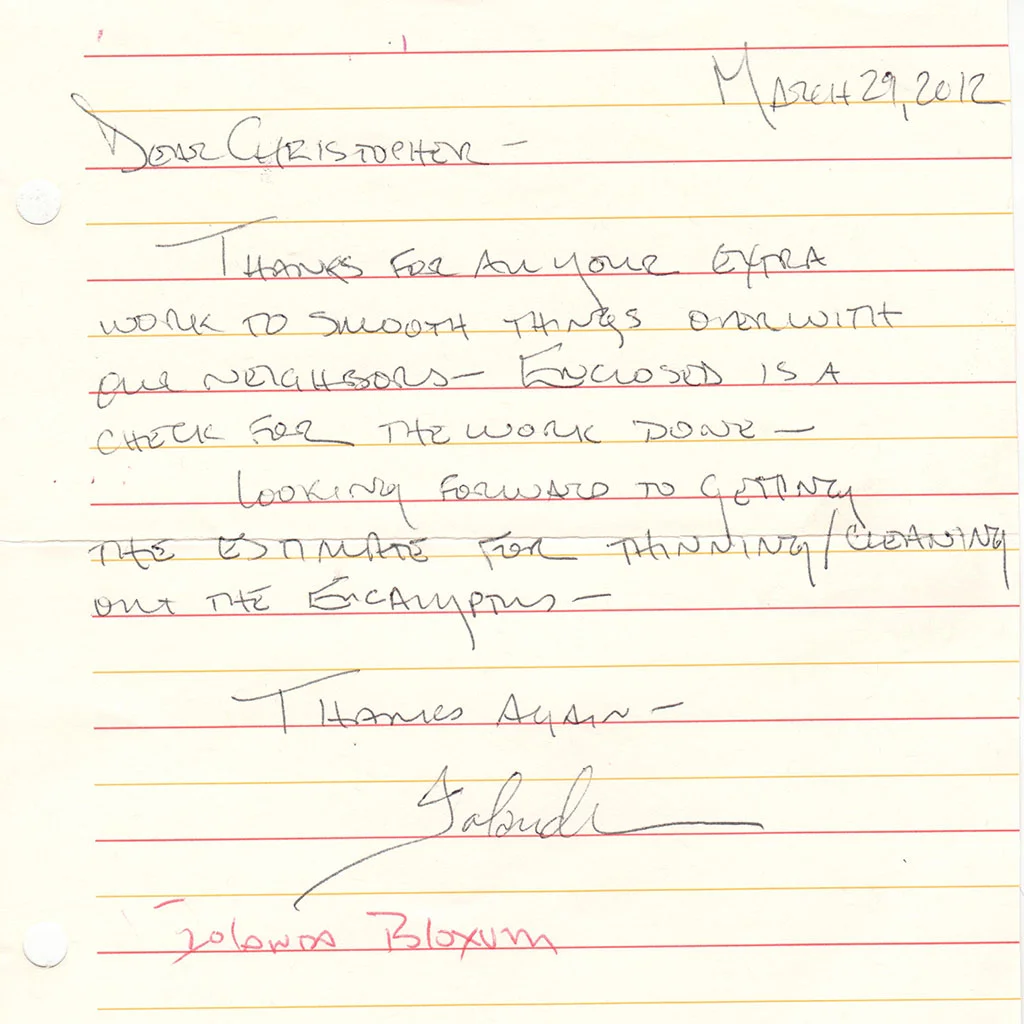 MARCH 29, 2012
DEAR CHRISTOPHER –
THANKS FOR ALL YOUR EXTRA
WORK TO SMOOTH THINGS OVER WITH
OUR NEIGHBORS – ENCLOSED IS A
CHECK FOR THE WORK DONE –
LOOKING FORWARD TO GETTING
THE ESTIMATE FOR THINNING/CLEANING
OUT THE EUCALYPTUS –
THANKS AGAIN –
Bloxum